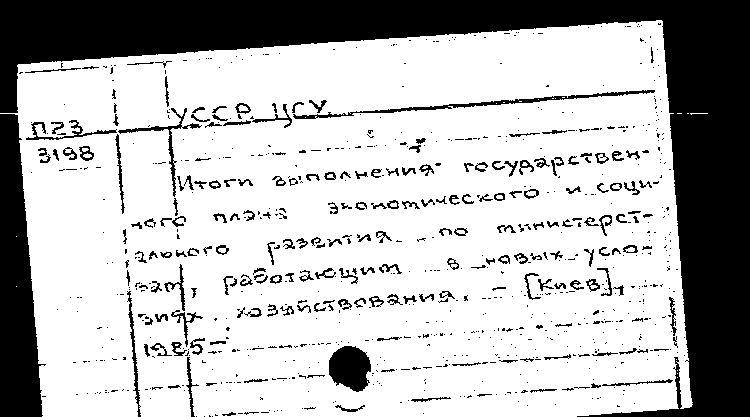 УССР. ЦСУ.
П23
3198
Итоги выполнения государствен-
ного плана экономического и соци-
ального развития по министерст-
вам, работающим в новых усло-
виях хозяйствования. - [Киев],
1985-